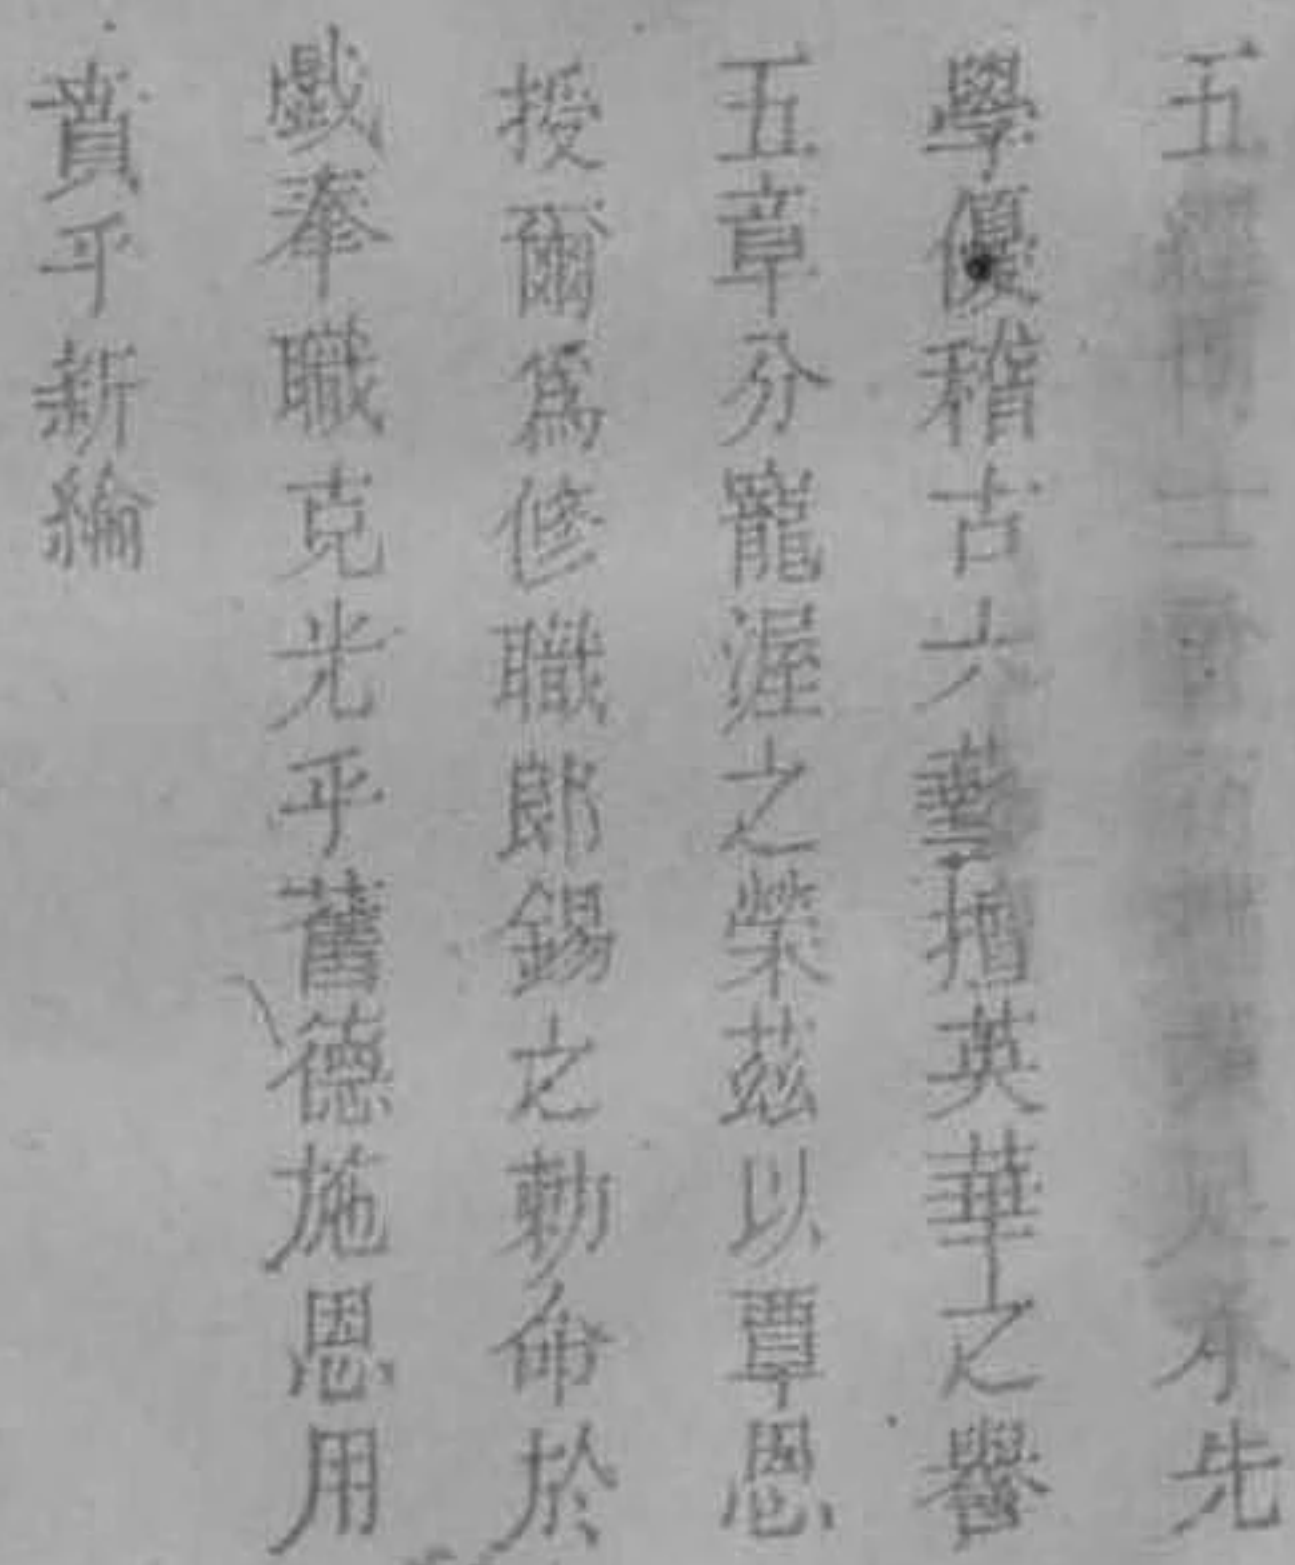 五經博士
先
學優稽古六藝擅英華之譽
五章分寵渥之榮茲以覃恩
授爾爲修職郎錫之勅命於
戲奉職克光乎舊德施恩用
賁乎新綸